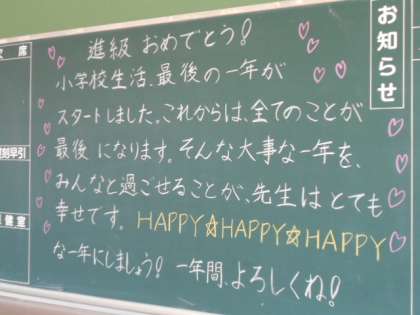 進級 おめでとう!
小学校生活、最後の一年が
スタートしました。これからは、全てのことが
最後 になります。そんな大事な一年を、
みんなと過ごせることが、先生はとても
幸せです。HAPPY☆HAPPY☆HAPPY
な一年にしましょう! 一年間、よろしくね!
お知らせ
席
刻早引
室